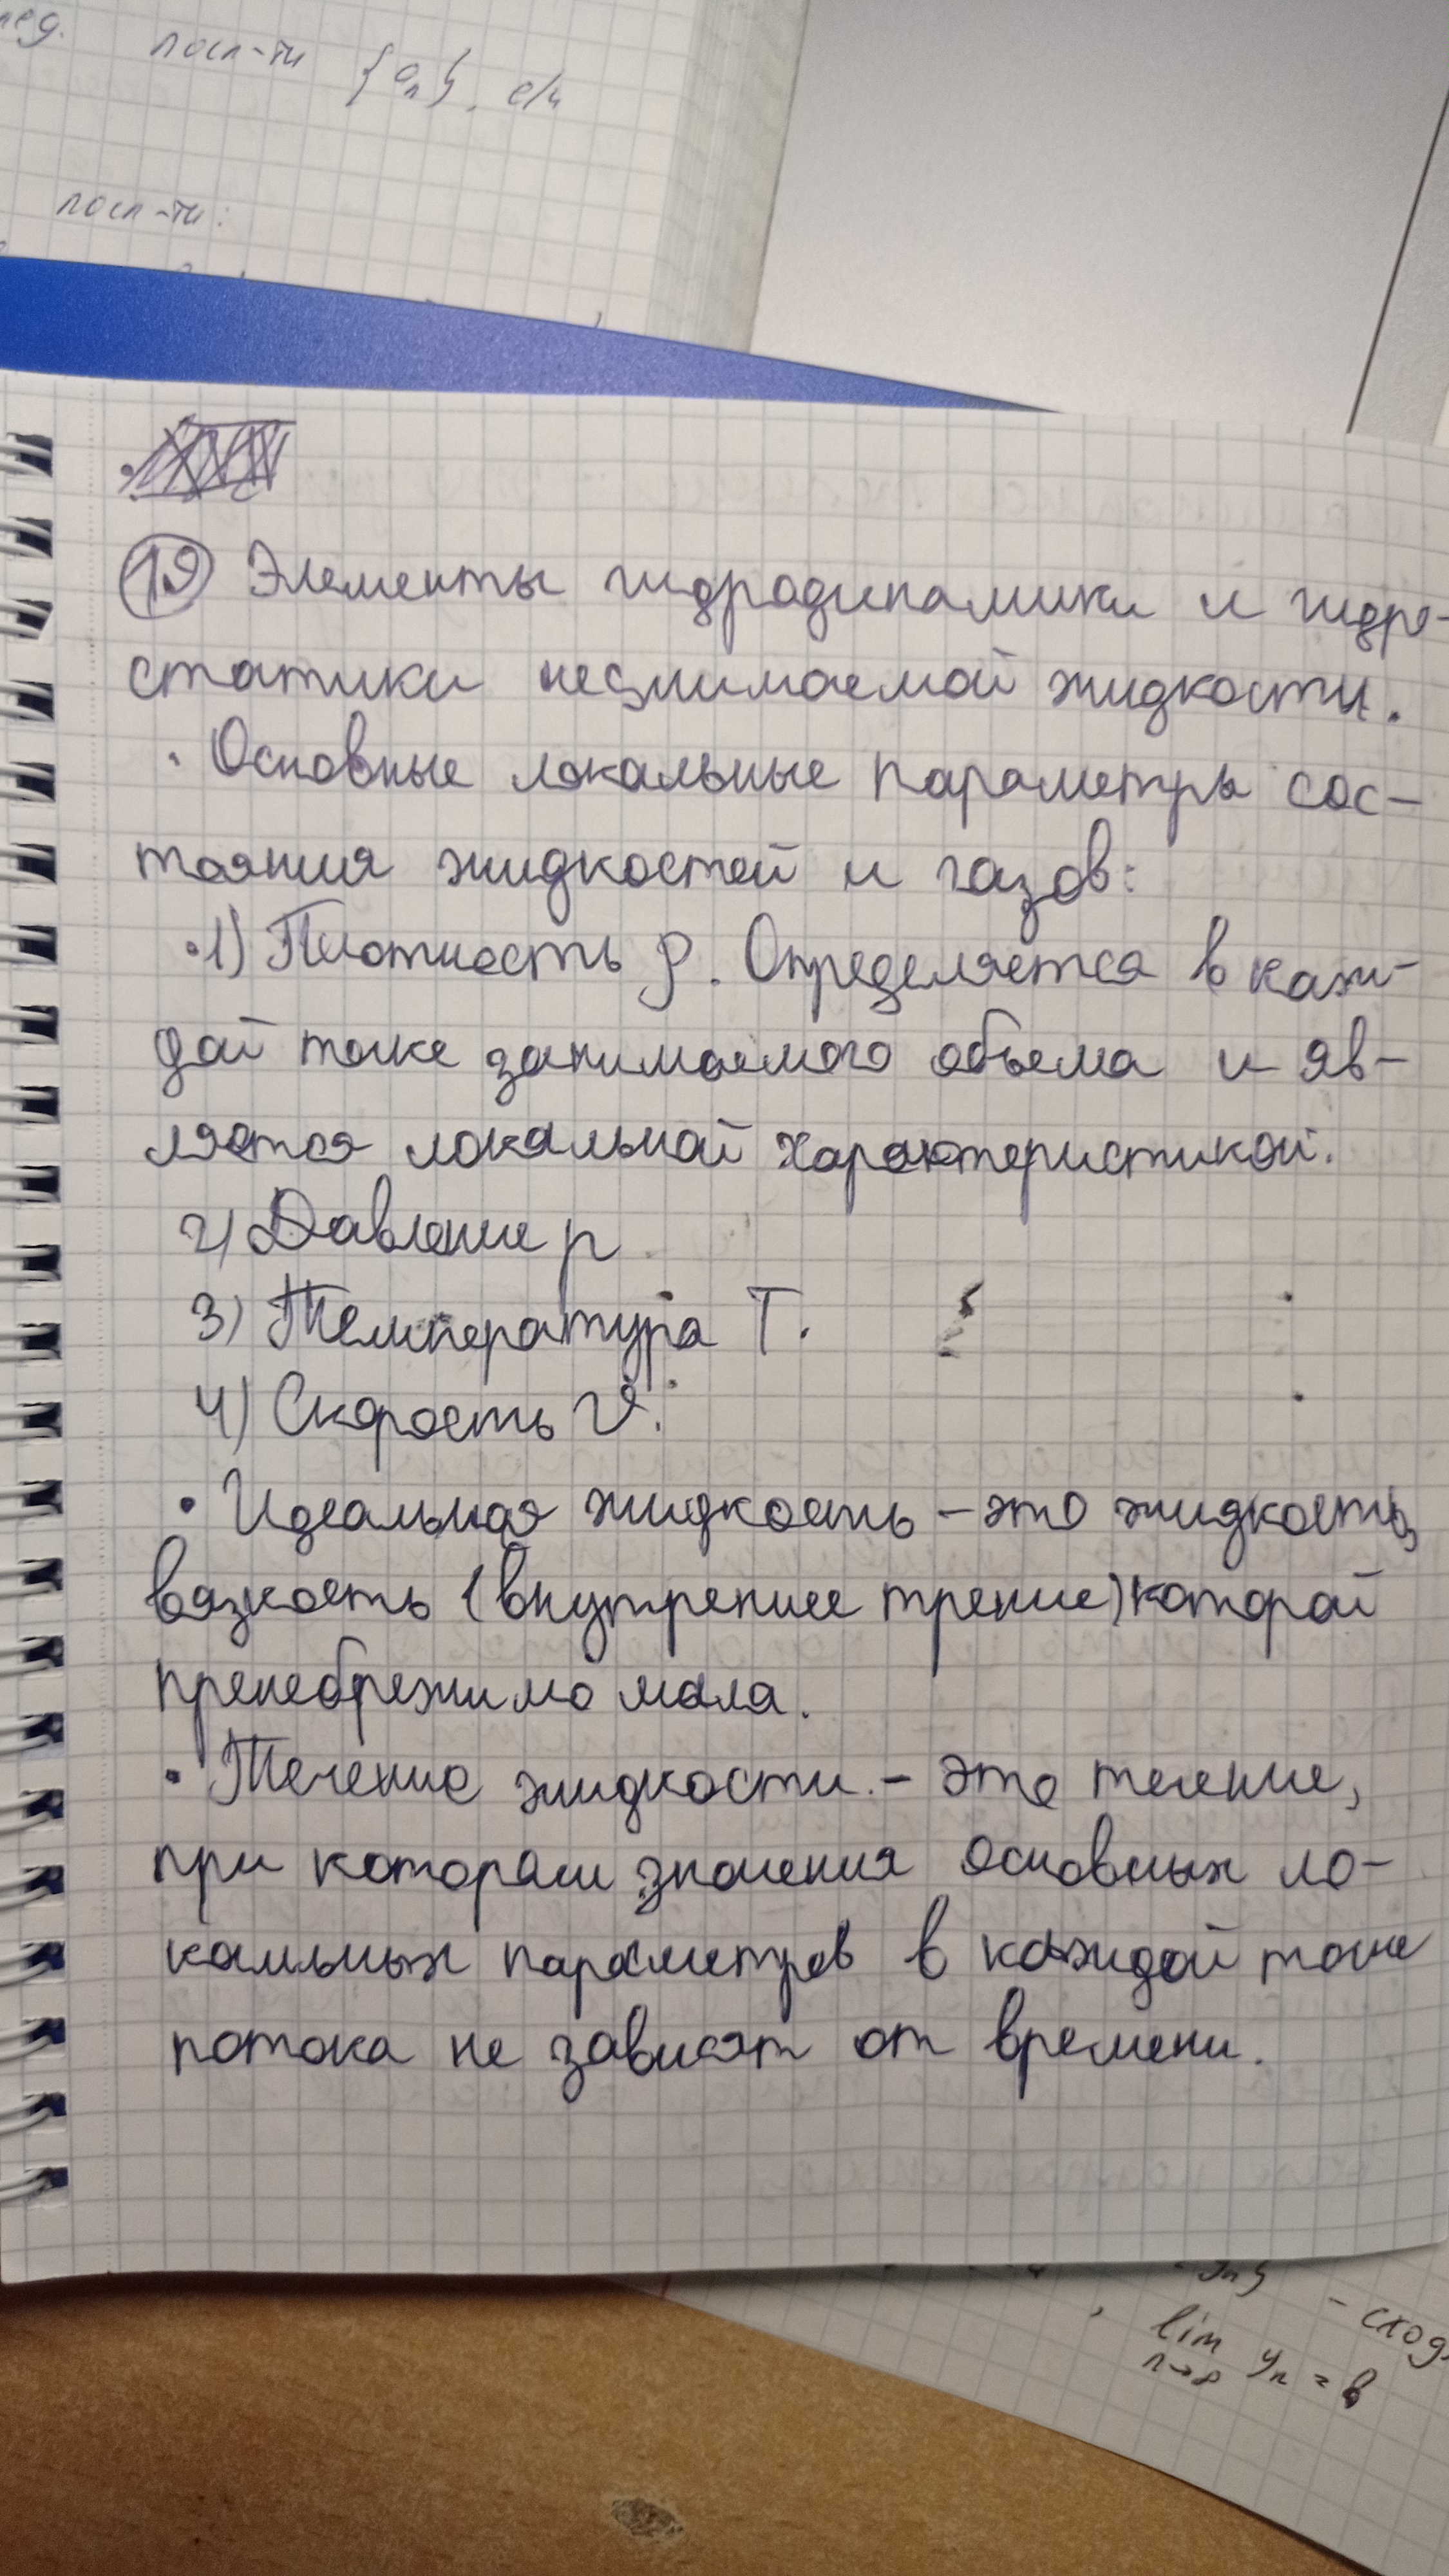 посл-ти {an}, е/и
посл-ти:
19 Элементы гидродинамики и гидро-
статики несжимаемой жидкости.
· Основные локальные параметры сос-
тояния жидкостей и газов:
·1) Плотность ρ. Определяется в каж-
дой точке занимаемого объема и яв-
ляется локальной характеристикой.
2) Давление p
3) Температура T.
4) Скорость v.
· Идеальная жидкость – это жидкость,
вязкость (внутреннее трение) которой
пренебрежимо мала.
· Течение жидкости – это течение,
при котором значения основных ло-
кальных параметров в каждой точке
потока не зависят от времени.
- сход
lim yn = b
n→∞